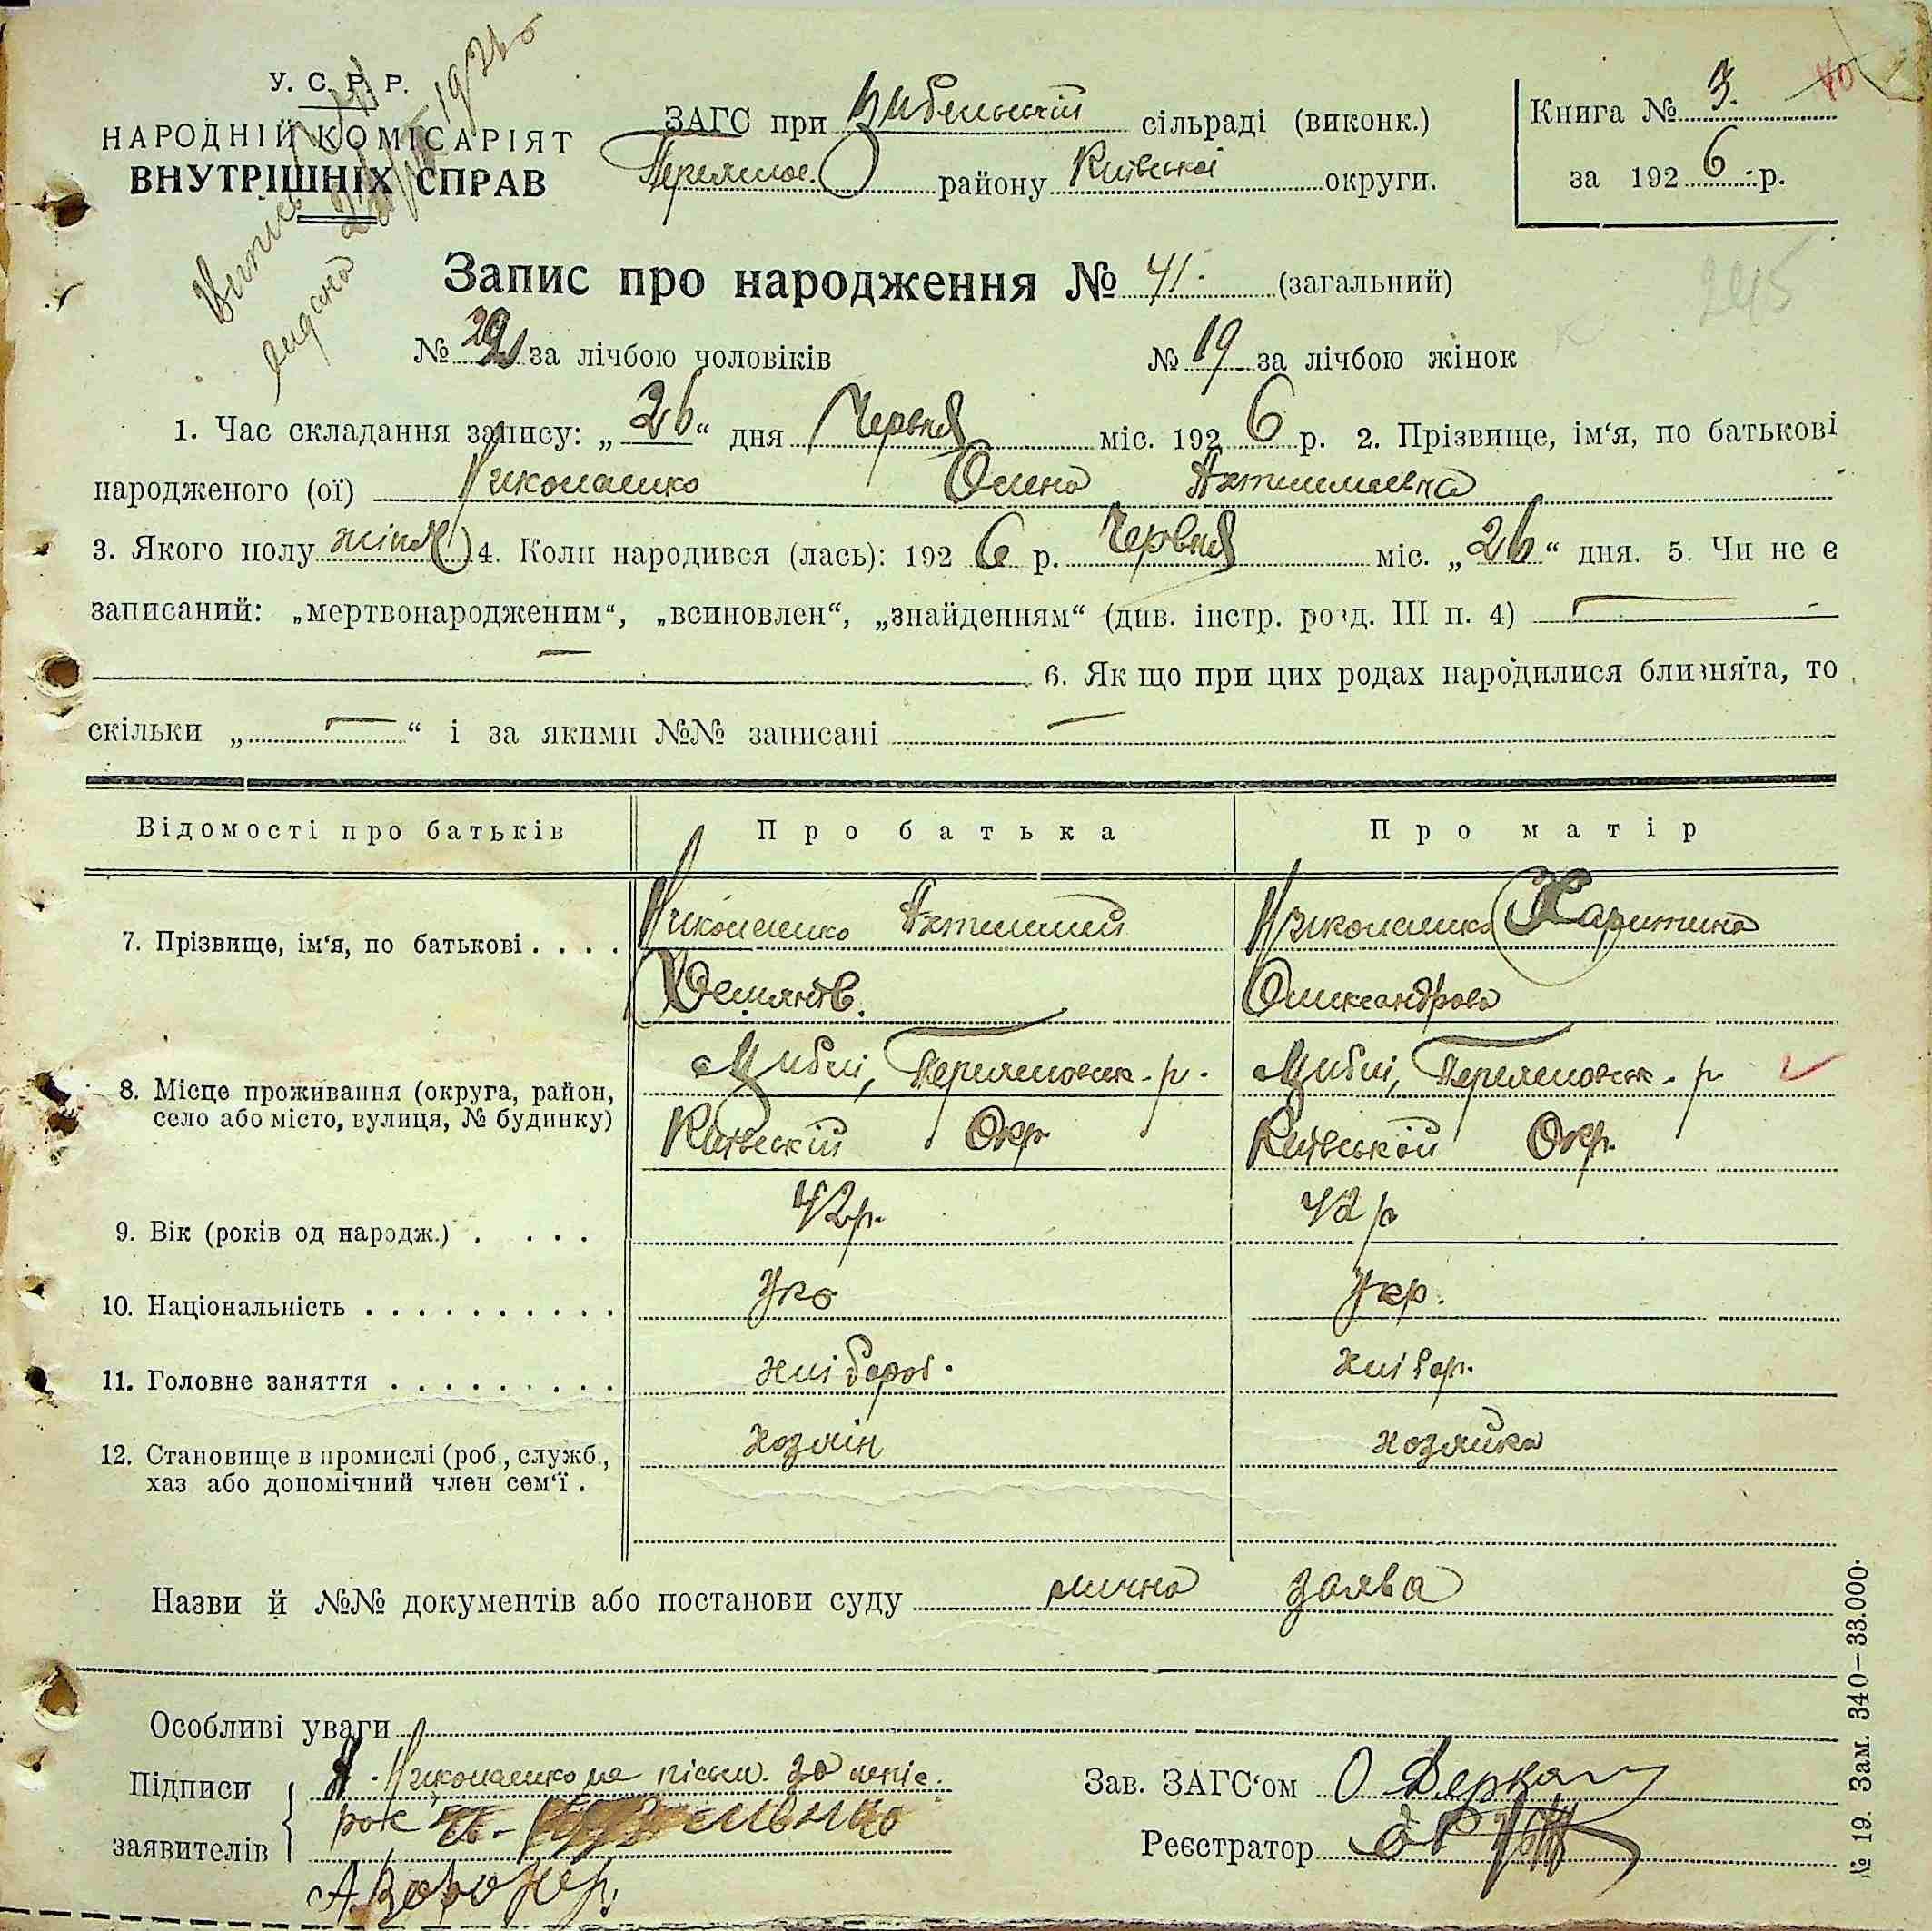 У. С. Р. Р.
НАРОДНІЙ КОМІСАРІЯТ
ВНУТРІШНІХ СПРАВ
видана 1926
ЗАГС при Цибельській сільраді (виконк.)
Переяслов. району Київської округи.
Книга № 3. 40
за 1926 р.
Запис про народження № 41. (загальний)
245
№ 22 за лічбою чоловіків № 19 за лічбою жінок
1. Час складання запису: „26“ дня Червня міс. 1926 р. 2. Прізвище, ім‘я, по батькові
народженого (ої) Николаенко Олена
3. Якого полу жіноч 4. Коли народився (лась): 1926 р. Червня міс. „26“ дня. 5. Чи не є
записаний: „мертвонародженим“, „всиновлен“, „знайденням“ (див. інстр. розд. III п. 4) —
— 6. Як що при цих родах народилися близнята, то
скільки „—“ і за якими №№ записані —
Відомості про батьків Про батька Про матір
7. Прізвище, ім‘я, по батькові . . . . Николаенко Николаенко Харитина
Демянів. Олександрова
8. Місце проживання (округа, район, Цибли, Переясловск. р. Цибли, Переясловск. р.
село або місто, вулиця, № будинку) Київській Окр Київській Окр.
9. Вік (років од народж.) . . . . 42 р. 42 р
10. Національність . . . . . . . . . . Укр Укр.
11. Головне заняття . . . . . . . . . хлібороб. хлібор.
12. Становище в промислі (роб., служб., хозяін хозяйка
хаз або допомічний член сем‘ї .
Назви й №№ документів або постанови суду лична заява
Особливі уваги
Підписи Николаенко
заявителів
Зав. ЗАГС‘ом О Деркач
Реєстратор
№ 19. Зам. 340—33.000.